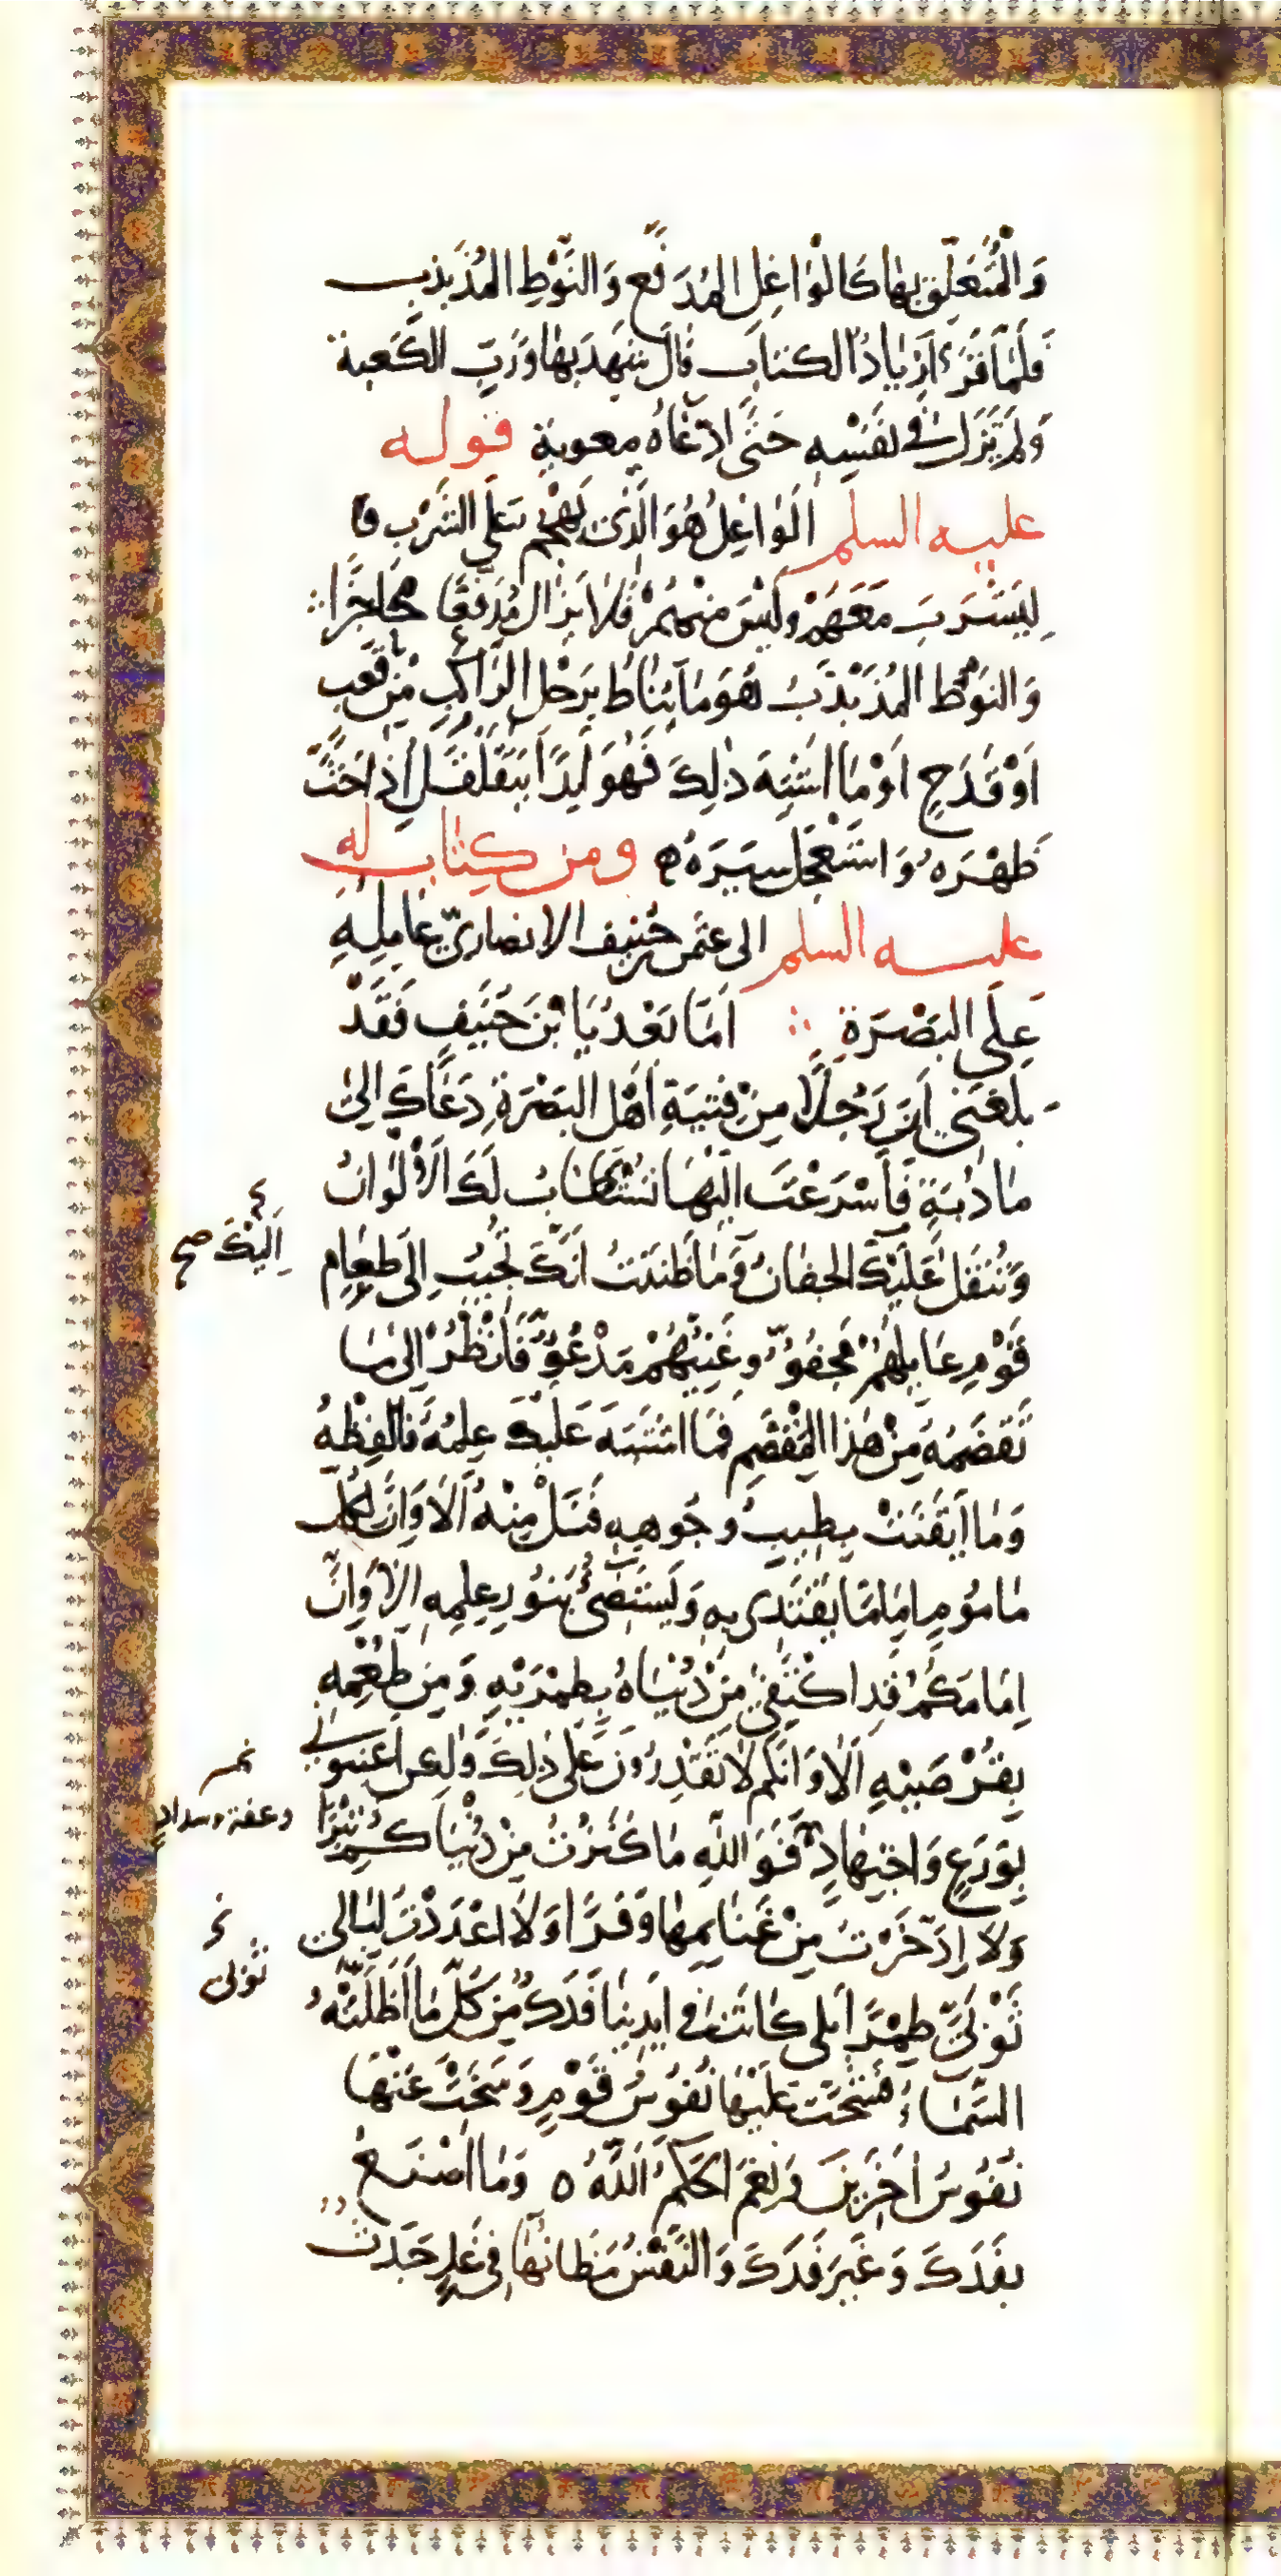 وَالْمُتَعَلِّق بِهَا كَالْوَاغِلِ الْمُدَفَّعِ وَالنَّوْطِ الْمُذَبْذَبِ
فَلَمَّا قَرَءَ زِيَادُ الكتابِ قالَ شَهِدَ بِهَا وَرَبِّ الكَعبة
وَلَمْ تَزَلْ فِي نَفْسِهِ حَتَّى ادَّعَاهُ معوية قوله
عليه السلم اَلوَاغِلُ هُوَ الَّذى يَهْجُم عَلَى الشَّرْب
لِيَشْرَبَ مَعَهَمْ وَلَيْسَ مِنهمُ فَلا يَزالُ مُدَفَّعًا مُحَاجَزًا
وَالنَوْط المُذَبْذَبُ هُوَ مَا يُنَاطُ بِرَحْلِ الرَّاكِبِ مِنْ قَعبٍ
اَوْ قَدَحٍ اَوْ مَا اشْبَهَ ذلِكَ فَهُوَ اَبَدًا يَتَقَلْقَلُ اِذَا حَثَّ
ظَهْرَه وَاسْتَعْجَلَ سَيْرَهُ ومن كِتاب له
عليه السلم الى عثمن حُنيف الانصاريّ عَامِلِهِ
عَلَى البَصْرَةِ اَمَّا بَعْدُ يَا ابْنَ حُنَيفٍ فَقَدْ
بلغنى اَنَّ رَجُلًا مِنْ فِتيَةِ اَهْلِ البَصْرَةِ دَعَاكَ الىٰ
مَادُبَةٍ فَاَسْرَعْتَ الَيْهَا تُسْتَطَابُ لَكَ الْاَلْوَانُ
وَتُنقَل عَلَيْكَ الجفانُ وَمَا ظَنَنتُ اَنَّكَ تُجيبُ اِلَى طَعَامِ
اِلَيْكَ صح
قَوْمٍ عَايلهُمْ مَجْفُوٌّ وَغَنِيُّهُمْ مَدْعُوٌّ فَانْظُرْ اِلى مَا
تَقضَمُهُ مِنْ هٰذا المَقْضَمِ فمَا اشتَبَهَ عَلَيْكَ عِلمُهُ فَالفِظْهُ
وَمَا اَيْقَنتْ بِطيبِ وجُوهِهِ فَنَلْ مِنْهُ اَلَا وَاِنَّ لِكُلِّ
مَامُومٍ اِمَامًا يَقْتَدِى بِهِ وَيَسْتَضىُ بِنُورِ عِلمِهِ اَلَا وَاِنَّ
اِمَامَكُمْ قَدِ اكْتَفىٰ مِنْ دُنْيَاهُ بِطِمْرَيْهِ وَمِنْ طُعْمِهِ
بِقُرْصَيْهِ اَلَا وَاِنَّكُم لا تَقْدِرُونَ عَلى ذلِكَ وَلكِن اَعِينونى
بِوَرَعٍ وَاجْتِهَادٍ فَوَاللّهِ مَا كَنَزْتُ مِنْ دُنْيَاكُمْ تِبْرًا
وعفة وسدادٍ
وَلا اِدَّخَرْتُ مِنْ غَنَايمِهَا وَفْرًا وَلَا اعْدَدْتُ لِبَالى
ثَوْبَىَّ طِمْرًا بَلى كانَت فى اَيدِينَا فَدَكُ مِنْ كُلِّ مَا اَظَلَّتْهُ
ثوبى
السَّمَاءُ فَشَحَّتْ عَلَيْهَا نُفوُسُ قَوْمٍ وَسَخَتْ عَنْهَا
نُفوُسُ اخَرِينَ وَنِعْمَ الحَكَمُ اللّهُ وَمَا اَصْنَعُ
بفَدَكَ وَغَيرِ فَدَكَ وَالنَّفْسُ مَظانُّهَا فى غَدٍ جَدَثٌ